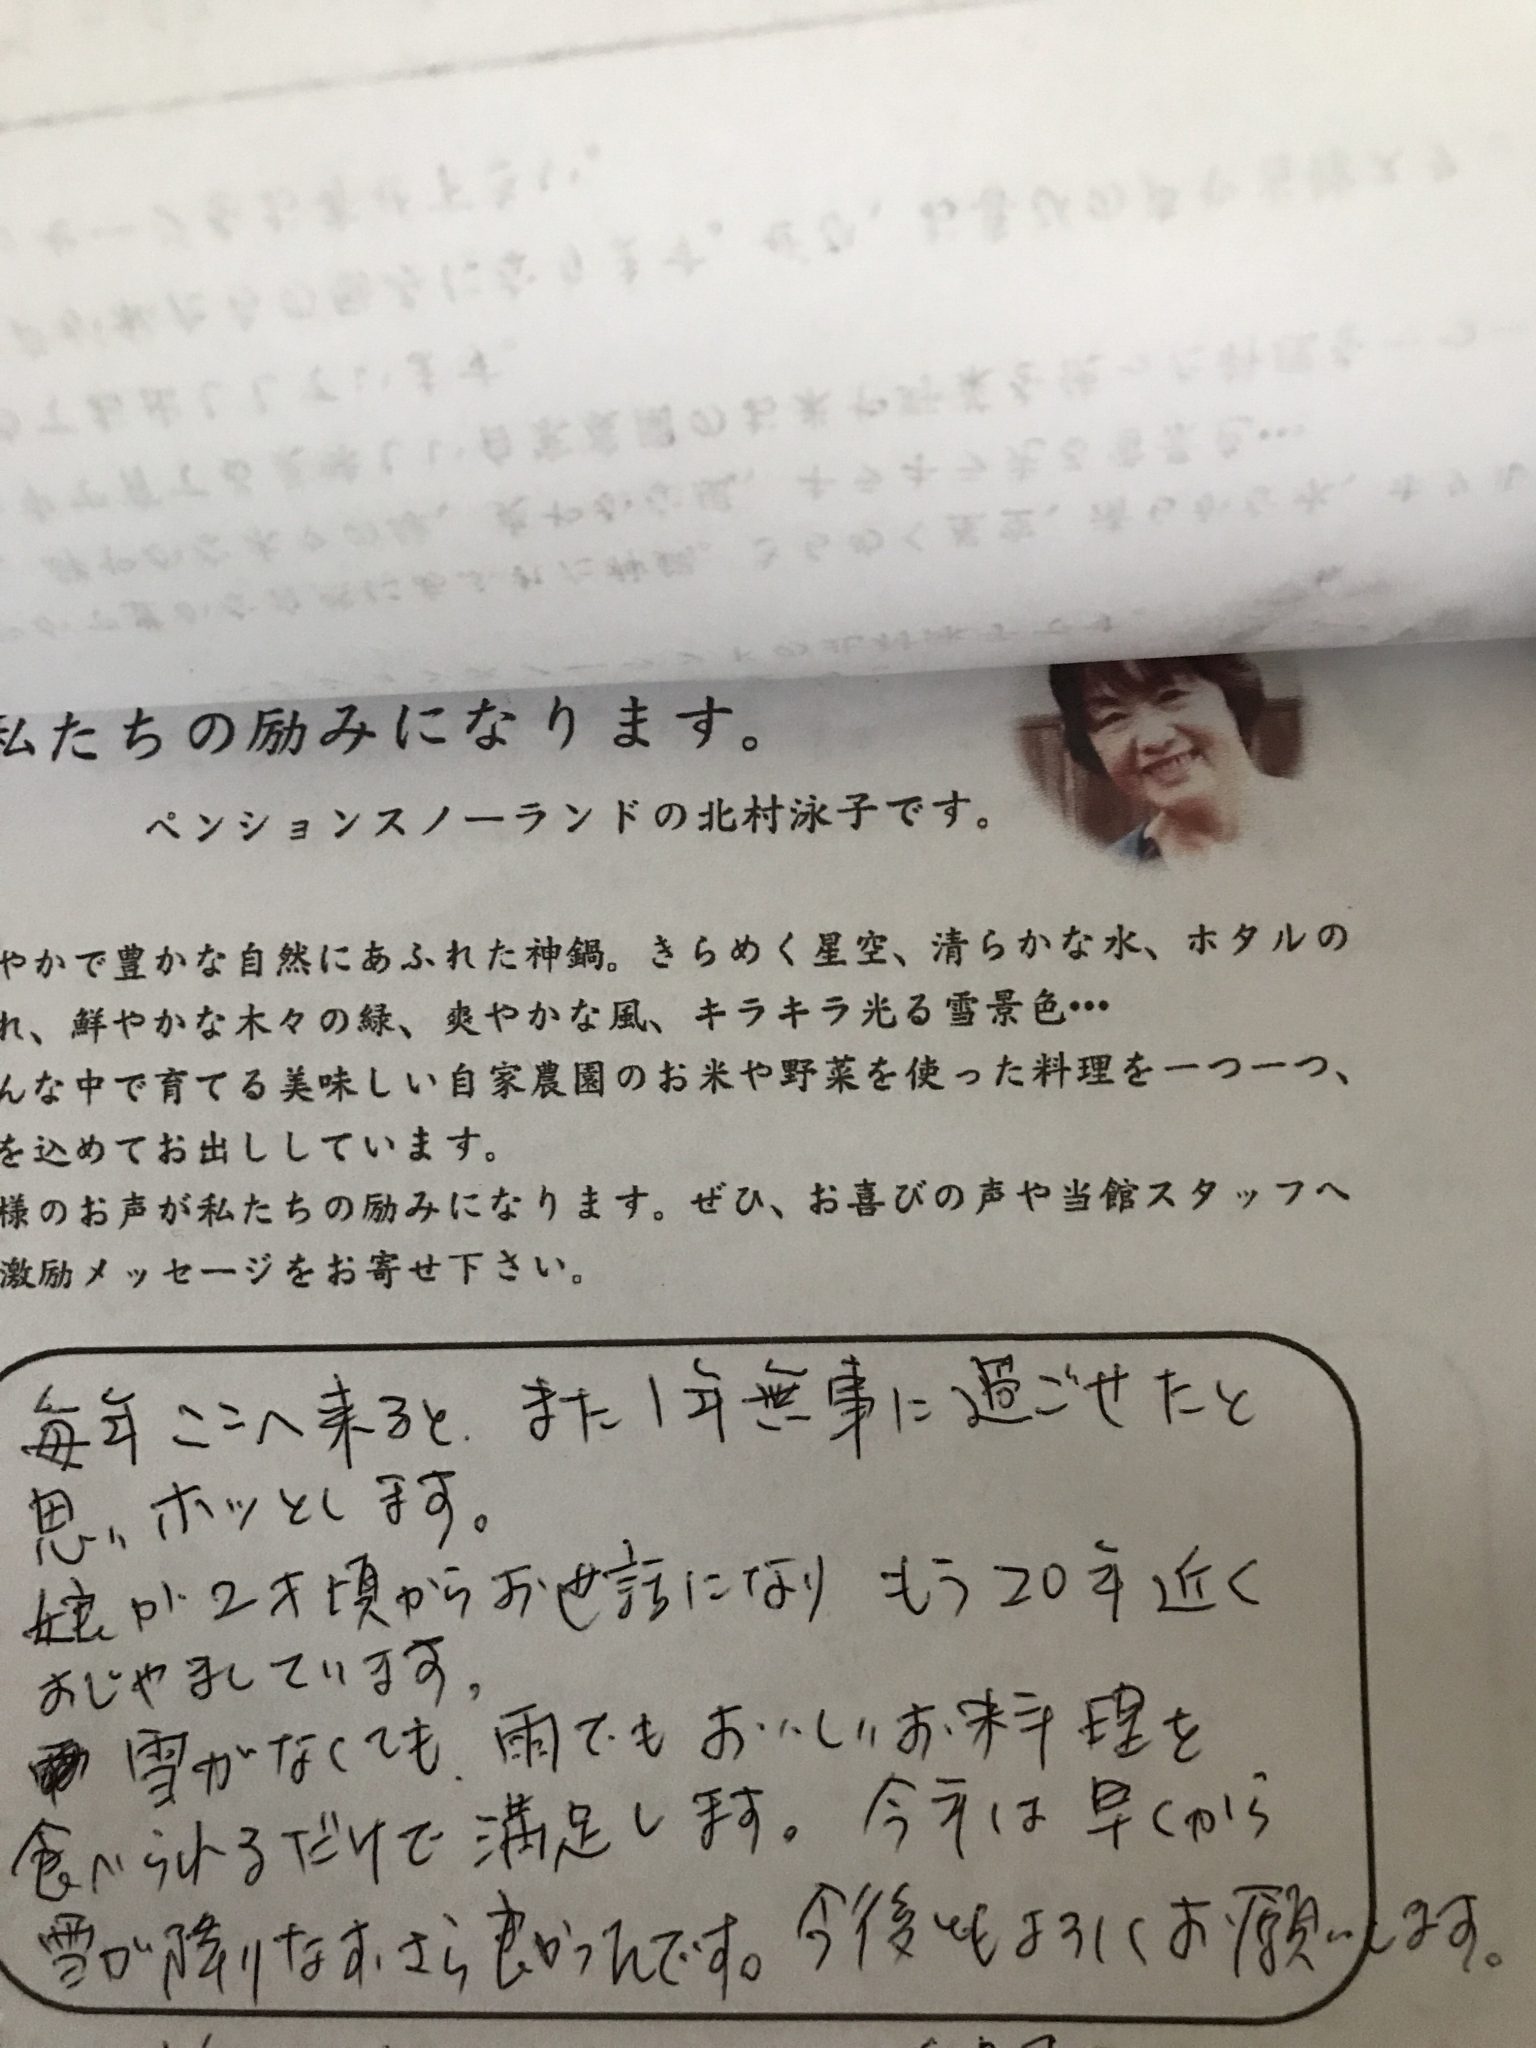 私たちの励みになります。
ペンションスノーランドの北村泳子です。
やかで豊かな自然にあふれた神鍋。きらめく星空、清らかな水、ホタルの
れ、鮮やかな木々の緑、爽やかな風、キラキラ光る雪景色…
んな中で育てる美味しい自家農園のお米や野菜を使った料理を一つ一つ、
を込めてお出ししています。
様のお声が私たちの励みになります。ぜひ、お喜びの声や当館スタッフへ
激励メッセージをお寄せ下さい。
毎年ここへ来ると、また1年無事に過ごせたと
思いホッとします。
娘が2才頃からお世話になり もう20年近く
おじゃましています。
雪がなくても、雨でもおいしいお料理を
食べられるだけで満足します。今年は早くから
雪が降りなおさら良かったです。今後ともよろしくお願いします。